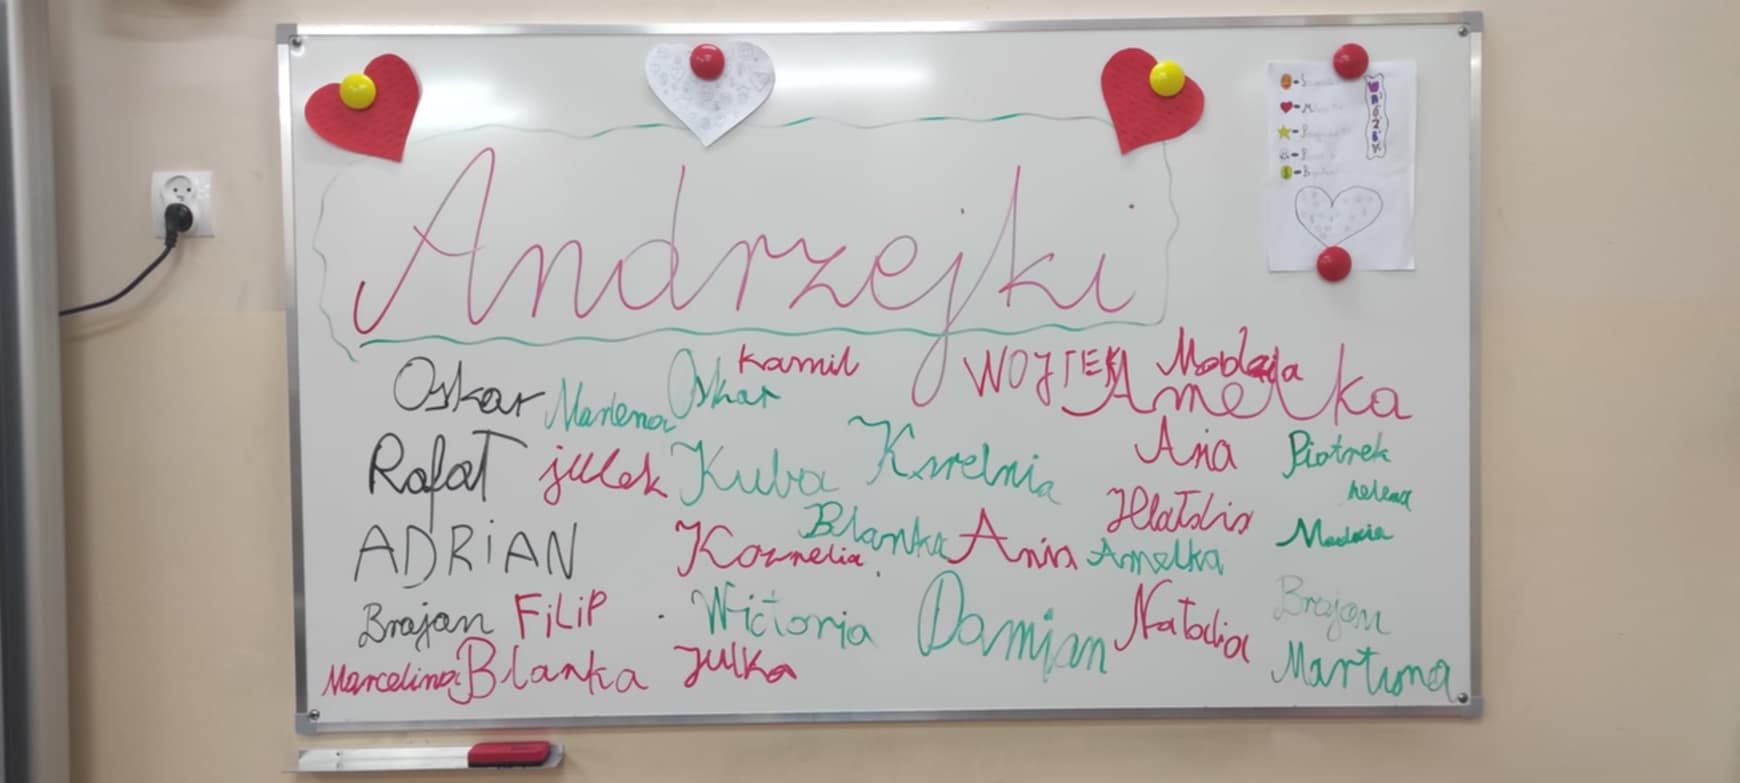 Andrzejki
Oskar Marlena Oskar Kamil WOJTEK Madzia Amelka
Rafał julek Kuba Kornelia Ania Piotrek
helena
ADRiAN Kornelia Blanka Ania Amelka Madzia
Brajan FiLiP Wictoria Damian Natalia Brajan
Marcelina Blanka Julka Martyna